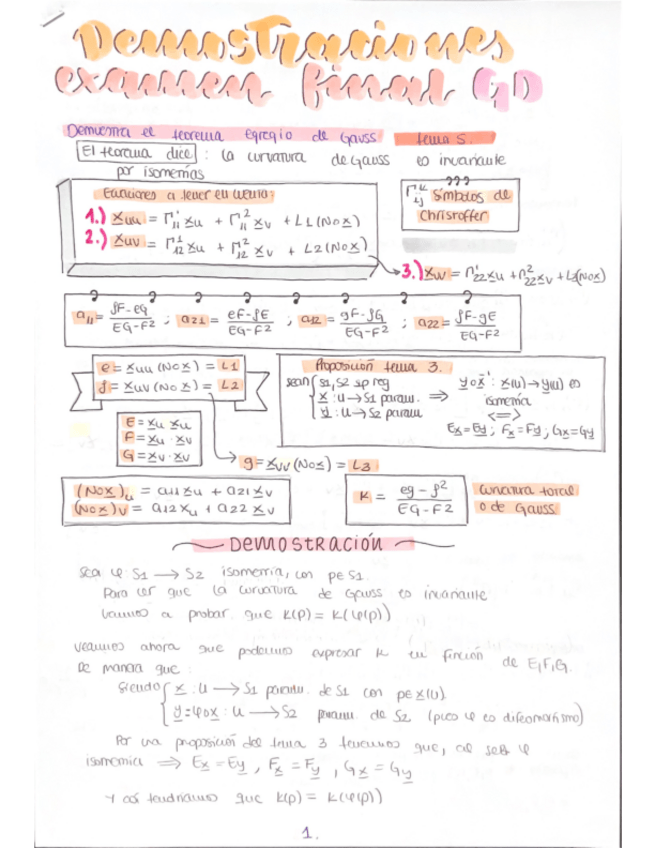 Demostraciones
examen final GD
Demuestra el teorema egregio de Gauss tema 5.
El teorema dice : la curvatura de Gauss es invariante
por isometrías
Ecuaciones a tener en cuenta:
1.) x̲uu = Γ¹₁₁ x̲u + Γ²₁₁ x̲v + L1(N∘x̲)
2.) x̲uv = Γ¹₁₂ x̲u + Γ²₁₂ x̲v + L2(N∘x̲)
???
Γᵏᵢⱼ Símbolos de
Christoffer
3.) x̲vv = Γ¹₂₂ x̲u + Γ²₂₂ x̲v + L3(N∘x̲)
a₁₁ = fF-eG / EG-F² ; a₂₁ = eF-fE / EG-F² ; a₁₂ = gF-fG / EG-F² ; a₂₂ = fF-gE / EG-F²
e = x̲uu (N∘x̲) = L1
f = x̲uv (N∘x̲) = L2
Proposición tema 3.
sean { S1, S2 sp reg
x̲ : U → S1 param. ⇒
y̲ : U → S2 param
y̲∘x̲⁻¹ : x(u) → y(u) es
isometría
<=>
Ex̲ = Ey̲ ; Fx̲ = Fy̲ ; Gx̲ = Gy̲
E = x̲u x̲u
F = x̲u · x̲v
G = x̲v · x̲v
g = x̲vv (N∘x̲) = L3
(N∘x̲)u = a11 x̲u + a21 x̲v
(N∘x̲)v = a12 x̲u + a22 x̲v
K = eg - f² / EG - F²
Curvatura total
o de Gauss
DEMOSTRACIÓN
Sea φ S1 → S2 isometría, con p∈S1
Para ver que la curvatura de Gauss es invariante
vamos a probar que K(p) = K(φ(p))
Veamos ahora que podemos expresar K en función de E,F,G.
De manera que :
Siendo { x̲ : U → S1 param. de S1 con p∈x̲(U).
y̲ = φ∘x̲ : U → S2 param. de S2 (pues φ es difeomorfismo)
Por una proposición del tema 3 tenemos que, al ser φ
isometría ⇒ Ex̲ = Ey̲ , Fx̲ = Fy̲ , Gx̲ = Gy̲
Y así tendríamos que K(p) = K(φ(p))
1.